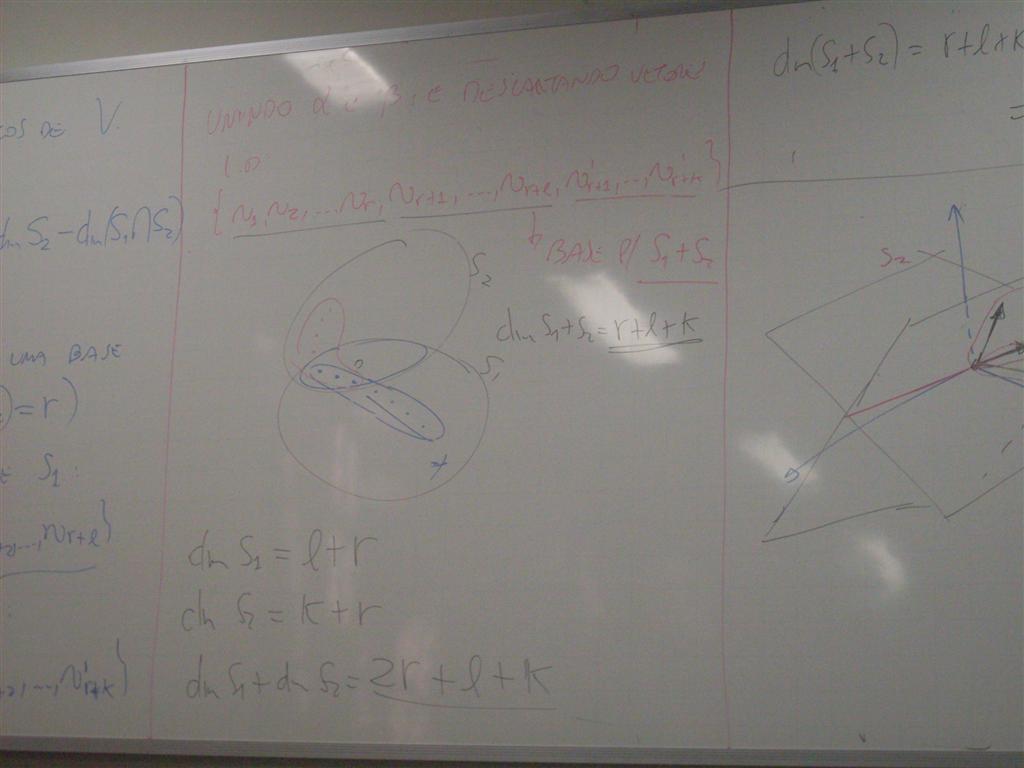 ços DE V.
dim S₂ - dim(S₁∩S₂)
UMA BASE
) = r)
E S₁:
+2,...,Nr+l}
+2,...,N'r+k}
UNINDO α e β, E DESCARTANDO VETORES
l.D:
{N₁, N₂, ... Nr, Nr+1, ..., Nr+l, N'r+1, ..., N'r+k}
BASE P/ S₁+S₂
S₂
dim S₁+S₂ = r+l+k
S₁
0
dim S₁ = l+r
dim S₂ = k+r
dim S₁ + dim S₂ = 2r + l + k
dim(S₁+S₂) = r+l+k
=
S₂